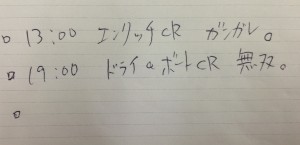 □ 13:00 エンリッチCR ガンガレ。
□ 19:00 ドライ&ボートCR 無双。
□